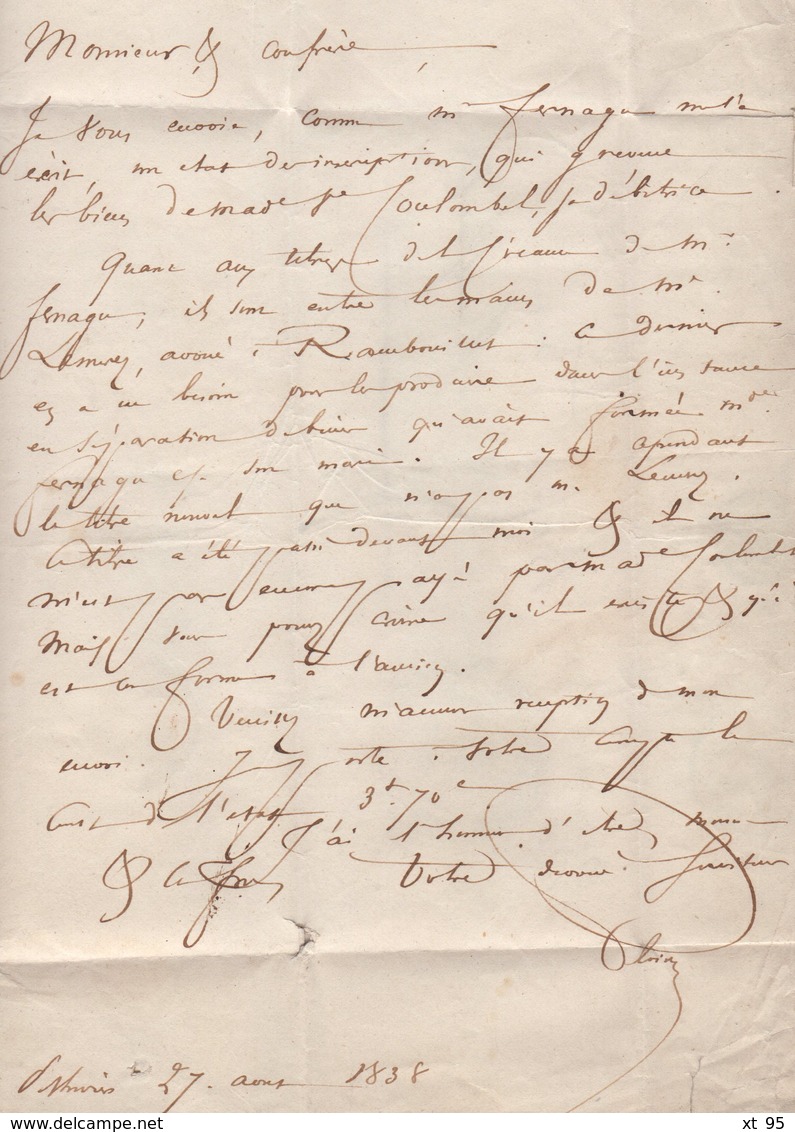 Monsieur & confrère,
Je vous envoie, comme Mr fernagu me l'a
écrit, un etat des inscriptions, qui grevent
les biens de made Coulombel, sa débitrice.
Quant aux titres de créance de Mr
fernagu, ils sont entre les mains de Mr
avoué à Rambouillet : ce dernier
en a eu besoin pour les produire dans l'instance
en séparation de biens qu'avait formée mde
fernagu et son mari. Il y a cependant
le titre nouvel que n'a pas m.
Ce titre a été passé devant moi & il ne
m'est pas encore payé par made Coulombel
Mais vous pouvez croire qu'il existe & qu'il
est en forme
Veuillez m'accuser reception de mon
envoi. Je porte à votre compte le
cout de l'etat 3f. 70c
J'ai l'honneur d'être, Monsieur
& confrère, Votre dévoué serviteur
27 aout 1838
xt 95